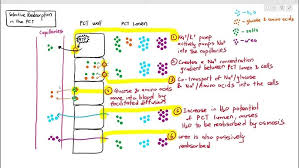 Selective Reabsorption
in the PCT
Capillaries
PCT wall
PCT lumen
- H₂O
- glucose & amino acids
- salts
- urea
① Na⁺/K⁺ pump
actively pumps Na⁺
into the cap.
② Creates a Na⁺ concentration
gradient between PCT lumen & cells
③ Co-transport of Na⁺/glucose
& Na⁺/amino acids into the cells
④ Glucose & amino acids
move into blood by
facilitated diffusion
⑤ Increase in H₂O potential
of PCT lumen, causes
H₂O to be reabsorbed by osmosis
⑥ urea is also passively
reabsorbed